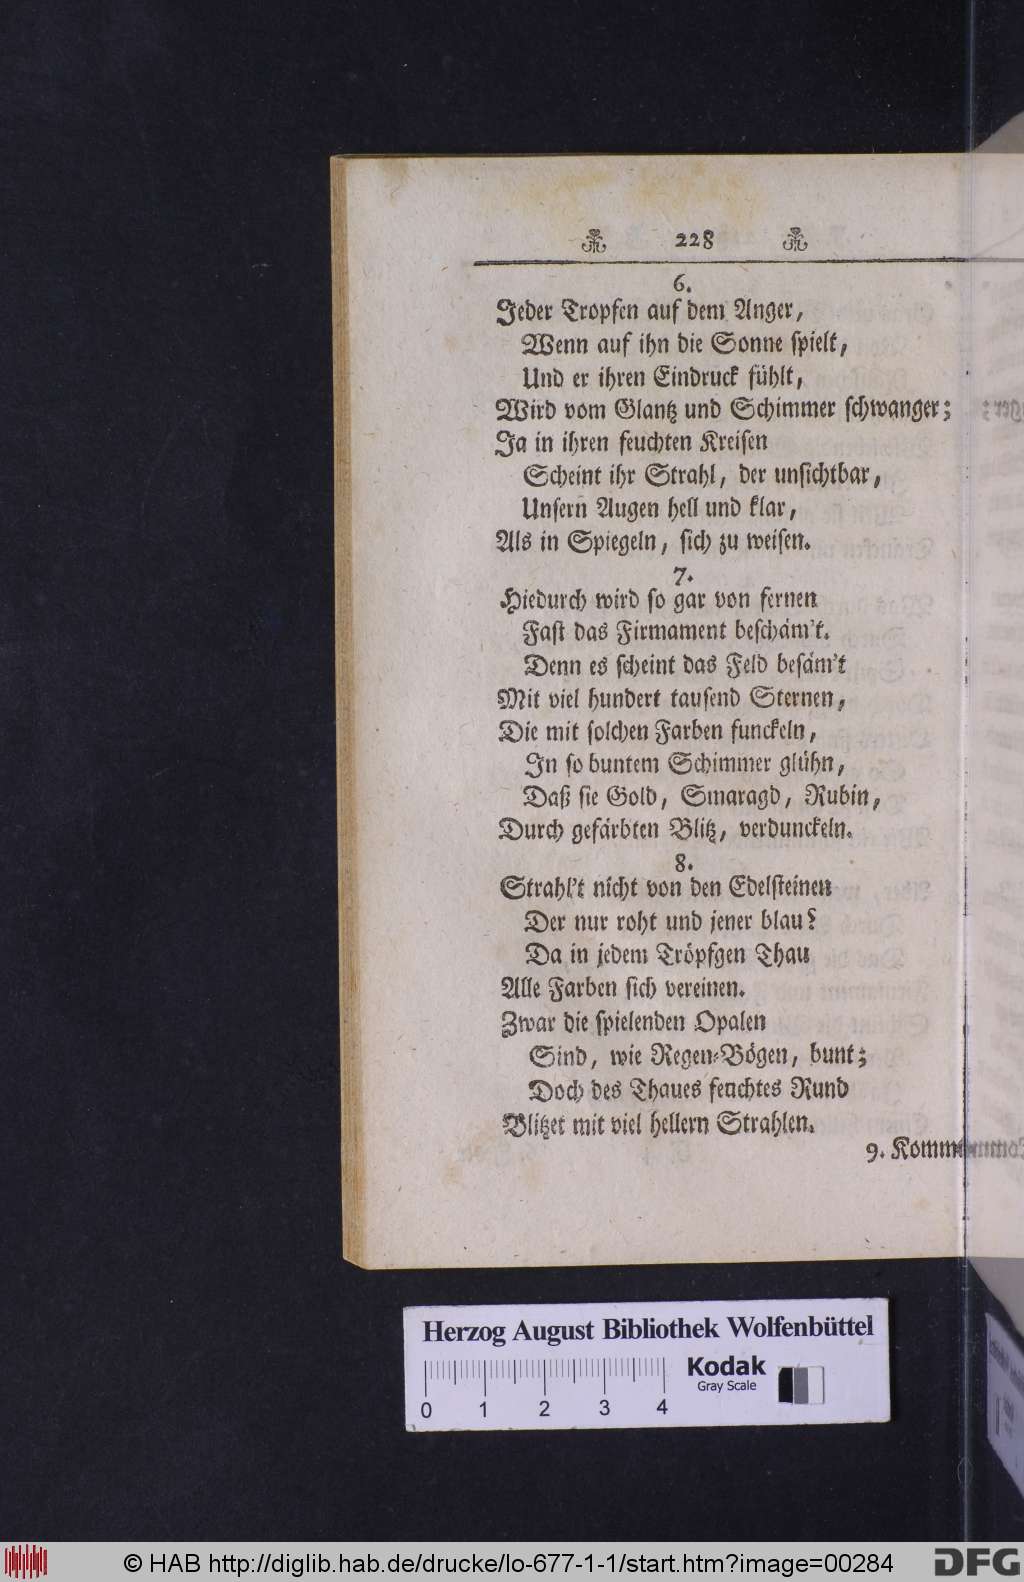 228
6.
Jeder Tropfen auf dem Anger,
Wenn auf ihn die Sonne spielt,
Und er ihren Eindruck fühlt,
Wird vom Glantz und Schimmer schwanger;
Ja in ihren feuchten Kreisen
Scheint ihr Strahl, der unsichtbar,
Unsern Augen hell und klar,
Als in Spiegeln, sich zu weisen.
7.
Hiedurch wird so gar von fernen
Fast das Firmament beschäm't.
Denn es scheint das Feld besäm't
Mit viel hundert tausend Sternen,
Die mit solchen Farben funckeln,
In so buntem Schimmer glühn,
Daß sie Gold, Smaragd, Rubin,
Durch gefärbten Blitz, verdunckeln.
8.
Strahl't nicht von den Edelsteinen
Der nur roht und jener blau?
Da in jedem Tröpfgen Thau
Alle Farben sich vereinen.
Zwar die spielenden Opalen
Sind, wie Regen-Bögen, bunt;
Doch des Thaues feuchtes Rund
Blitzet mit viel hellern Strahlen.
9. Komm
Herzog August Bibliothek Wolfenbüttel
Kodak
Gray Scale
0 1 2 3 4
© HAB http://diglib.hab.de/drucke/lo-677-1-1/start.htm?image=00284
DFG